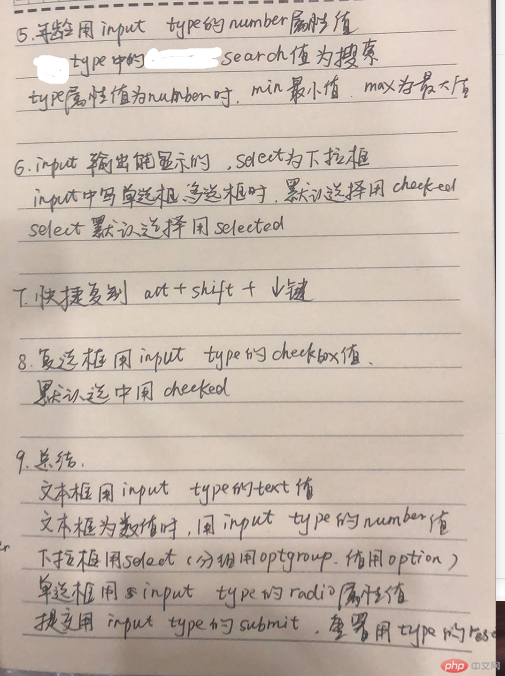 5.年龄用input type的number属性值
type中的 search值为搜索
type属性值为number时,min最小值、max为最大值
6.input输出能显示的,select为下拉框
input中写单选框多选框时,默认选择用checked
select默认选择用selected
7.快捷复制 alt+shift+↓键
8.复选框用input type的checkbox值.
默认选中用checked
9.总结.
文本框用input type的text值
文本框为数值时,用input type的number值
下拉框用select(分组用optgroup、值用option)
单选框用input type的radio属性值
提交用input type的submit,重置用type的rese
php 中文网